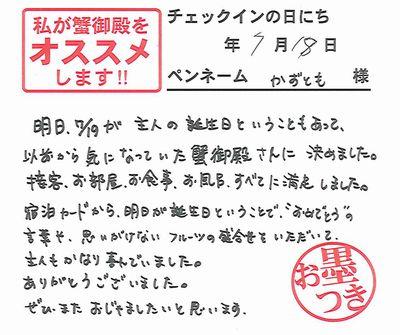 私が蟹御殿を
オススメ
します!!
チェックインの日にち
年 7月18日
ペンネーム かずとも 様
明日、7/19が 主人の誕生日ということもあって、
以前から気になっていた蟹御殿さんに決めました。
接客、お部屋、お食事、お風呂、すべてに満足しました。
宿泊カードから、明日が誕生日ということで、"おめでとう"の
言葉や、思いがけないフルーツの盛合せをいただいて、
主人もかなり喜んでいました。
ありがとうございました。
ぜひまたおじゃましたいと思います。
お墨つき